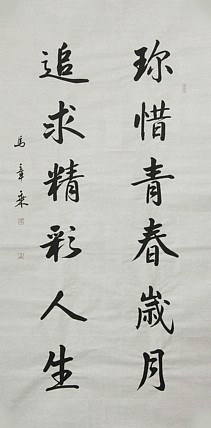 珎惜青春歲月
追求精彩人生
馬章乘